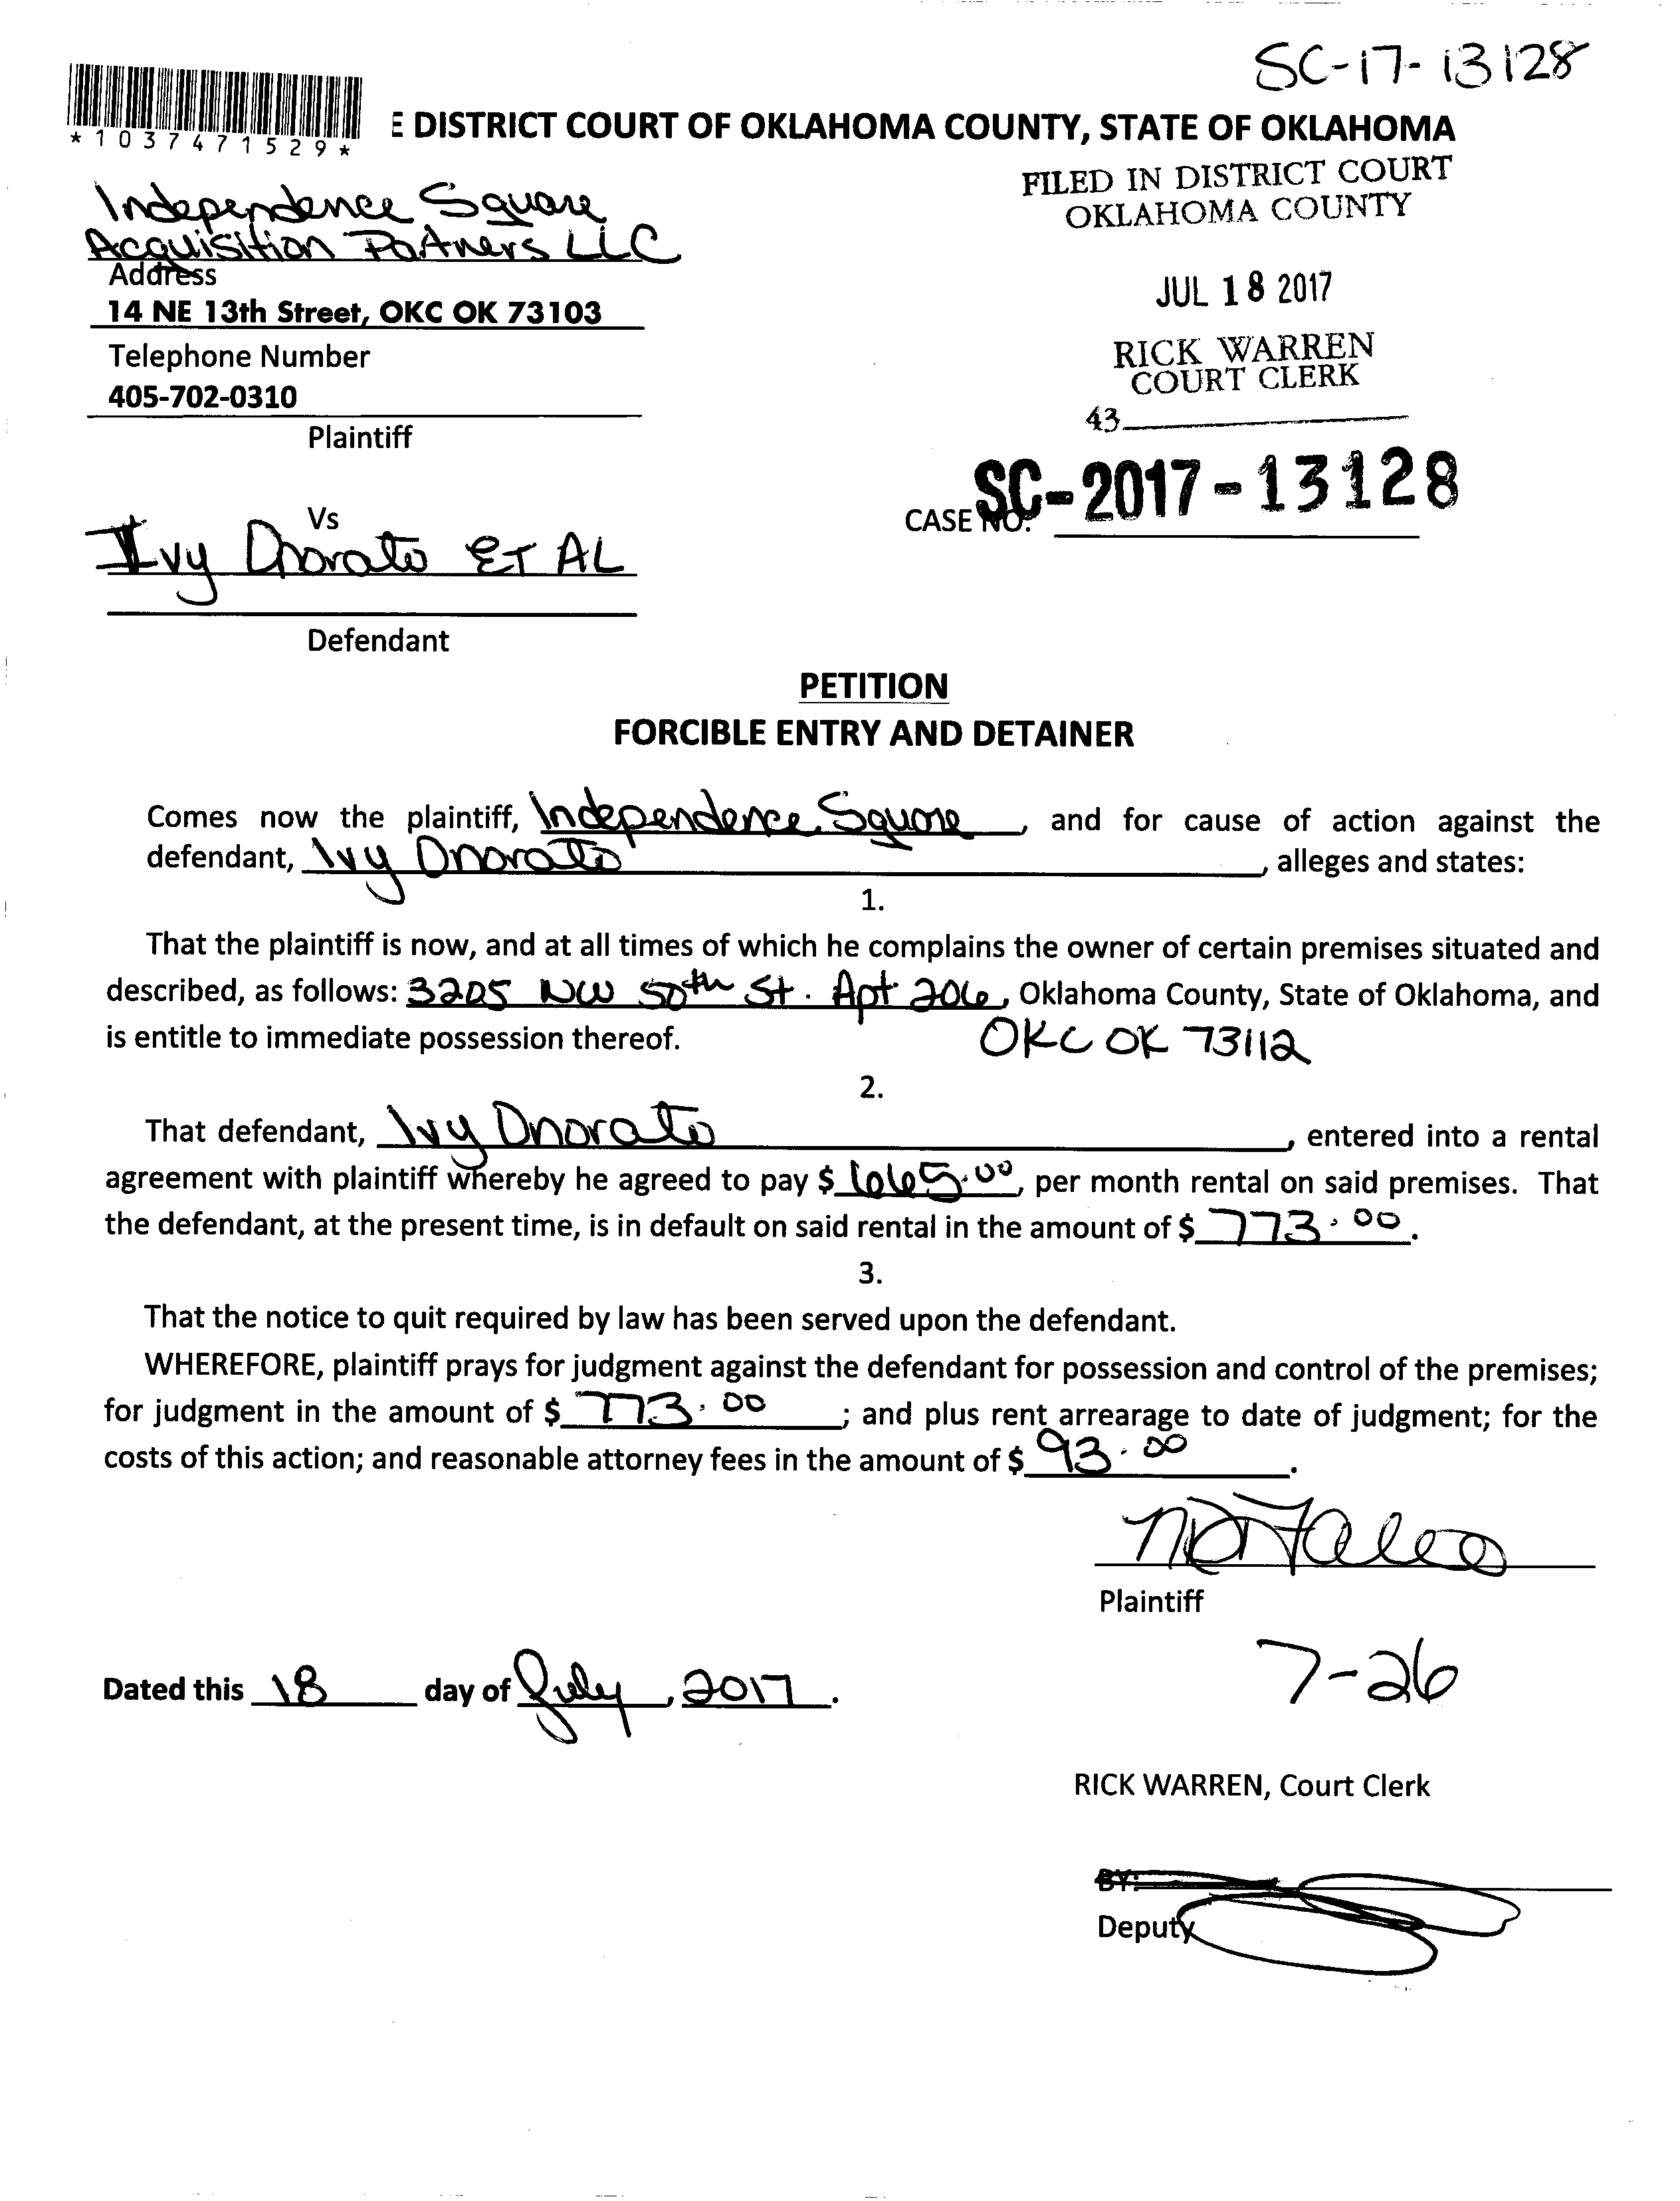 SC-17-13128
*1037471529*
E DISTRICT COURT OF OKLAHOMA COUNTY, STATE OF OKLAHOMA
FILED IN DISTRICT COURT
OKLAHOMA COUNTY
Independence Square
Acquisition Partners LLC
Address
14 NE 13th Street, OKC OK 73103
JUL 18 2017
Telephone Number
405-702-0310
RICK WARREN
COURT CLERK
43
Plaintiff
CASE NO. SC-2017-13128
Vs
Ivy Onorato ET AL
Defendant
PETITION
FORCIBLE ENTRY AND DETAINER
Comes now the plaintiff, Independence Square, and for cause of action against the
defendant, Ivy Onorato, alleges and states:
1.
That the plaintiff is now, and at all times of which he complains the owner of certain premises situated and
described, as follows: 3205 NW 50th St. Apt 206, Oklahoma County, State of Oklahoma, and
is entitle to immediate possession thereof. OKC OK 73112
2.
That defendant, Ivy Onorato, entered into a rental
agreement with plaintiff whereby he agreed to pay $ 665.00, per month rental on said premises. That
the defendant, at the present time, is in default on said rental in the amount of $ 773.00.
3.
That the notice to quit required by law has been served upon the defendant.
WHEREFORE, plaintiff prays for judgment against the defendant for possession and control of the premises;
for judgment in the amount of $ 773.00; and plus rent arrearage to date of judgment; for the
costs of this action; and reasonable attorney fees in the amount of $ 93.00.
Plaintiff
7-26
Dated this 18 day of July, 2017.
RICK WARREN, Court Clerk
BY:
Deputy